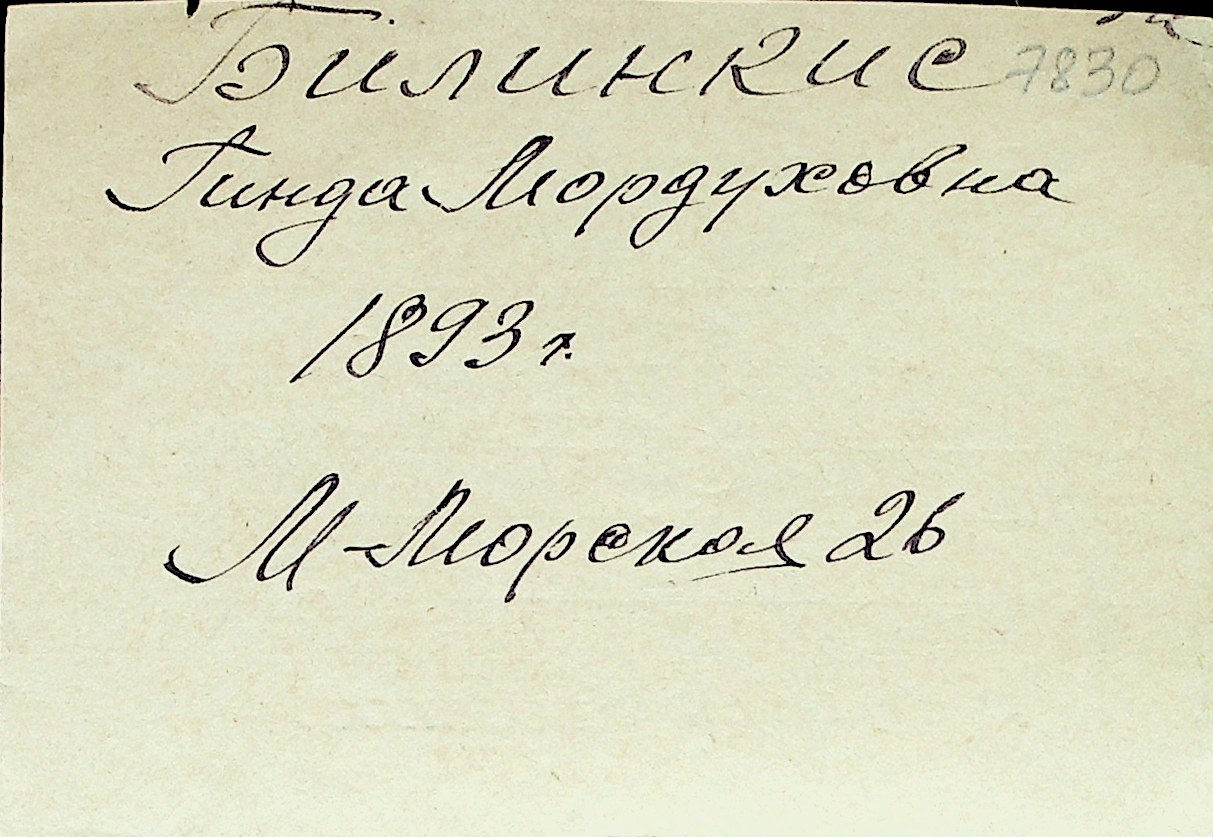 Билинкис 7830
Гинда Мордуховна
1893 г.
М-Морская 26